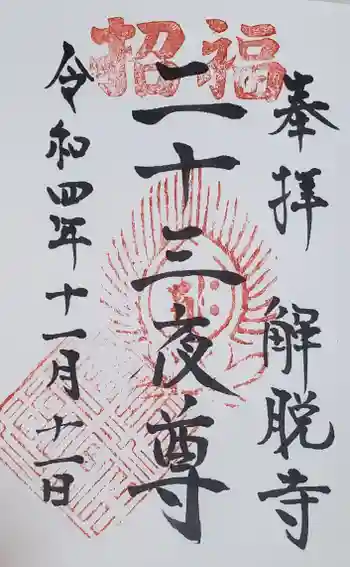 招福
奉拝 解脱寺
二十三夜尊
令和四年十一月十一日